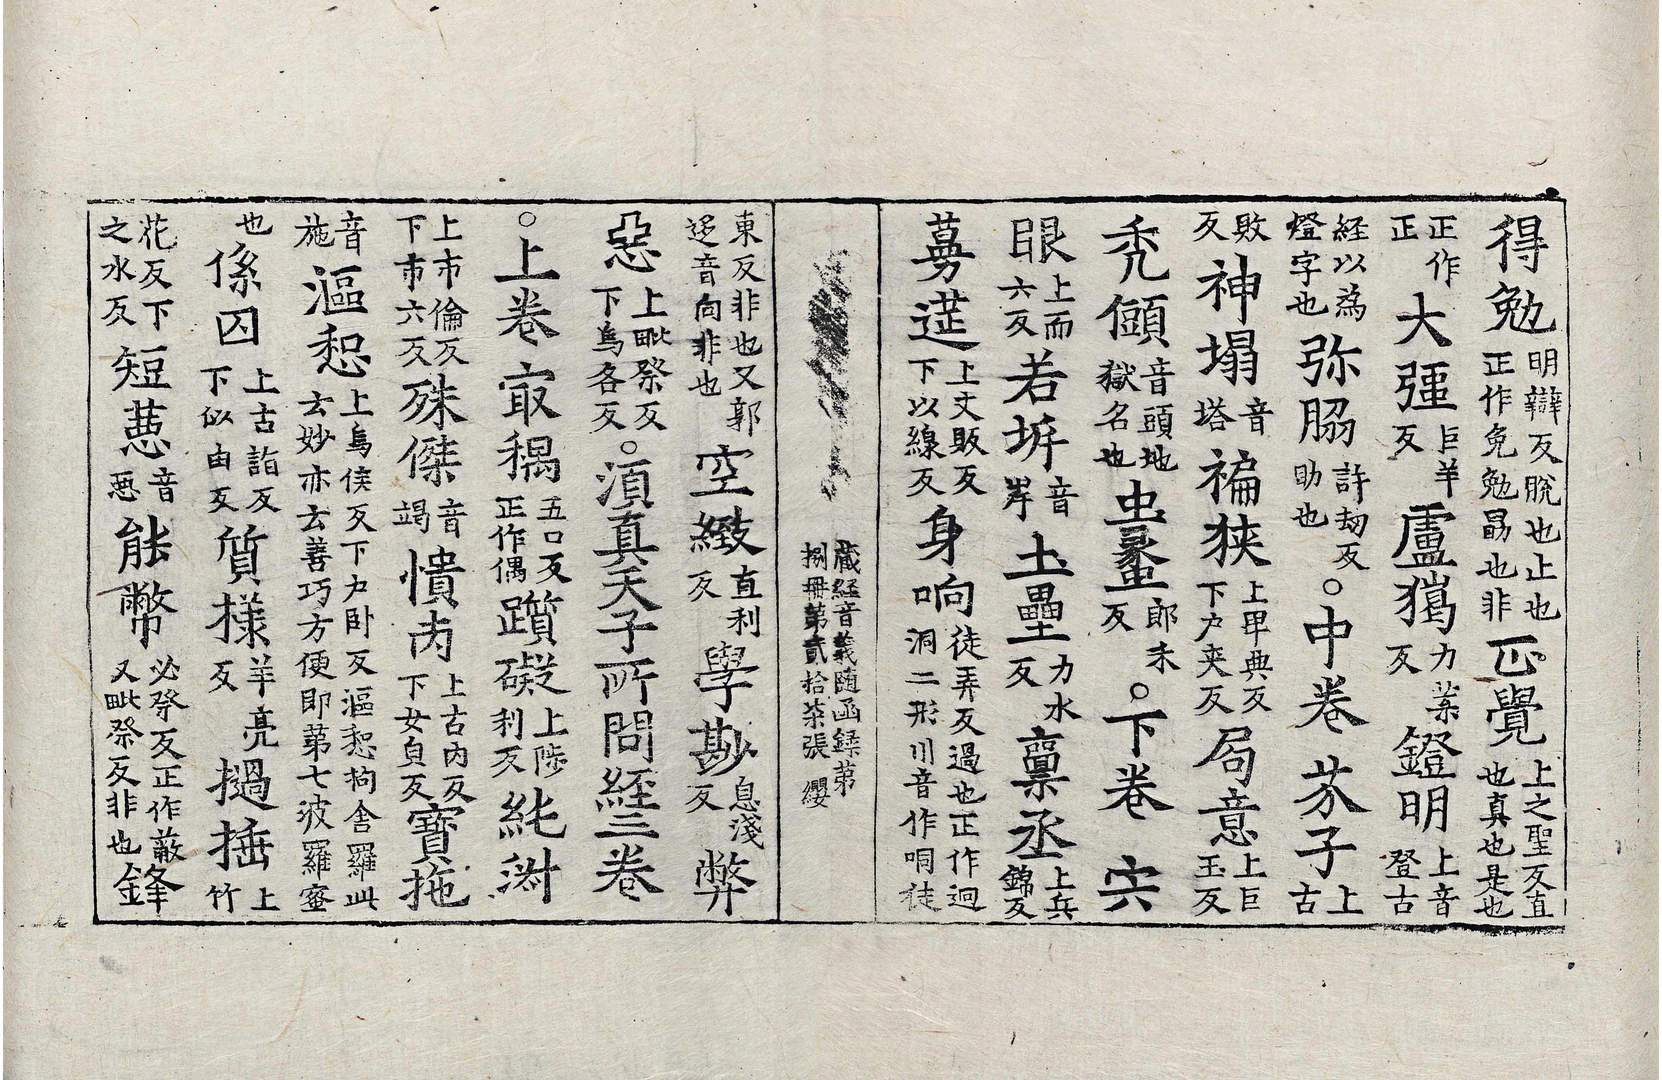 得勉明辯反脫也止也正作免勉勗也非正覺上之聖反直也真也是也
正作正大彊巨羊反盧獦力葉反鐙明上音登古
経以為燈字也弥脇許刼反助也○中卷芥子上古
敗反神塌音塔褊狹上甲典反下户夾反局意上巨玉反
禿儩音頭地獄名也郎未反○下卷宍
眼上而六反若坼音岸土壘力水反稟丞上兵錦反
蔓莚上丈販反下以線反身响徒弄反過也正作迵洞二形川音作哃徒
藏経音義随函録第捌冊第貳拾柒張 纓
東反非也又郭迻音向非也空緻直利反學尠息淺反弊
惡上毗祭反下烏各反○湏真天子所問経三卷
○上卷冣耦五口反正作偶躓礙上陟利反純淑
上市倫反下市六反殊傑音竭憒丙上古内反下女㒵反寶拖
音施漚惒上烏侯反下户卧反漚惒拘舍羅此云妙亦云善巧方便即第七波羅蜜
也係囚上古詣反下似由反質樣羊亮反撾捶上竹
花反下之水反短䓤音悪能幣必祭反正作蔽又毗祭反非也鋒